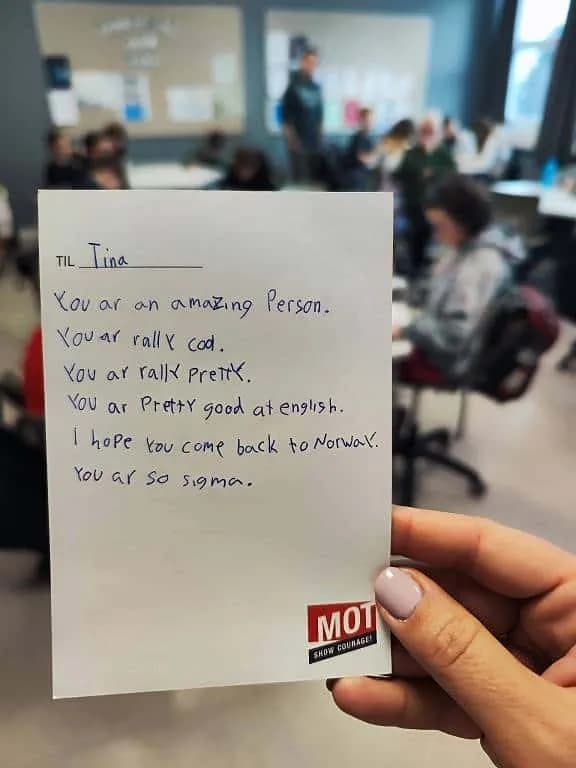 TIL Tina
You ar an amazing Person.
You ar rally cool.
You ar rally Pretty.
You ar Pretty good at english.
I hope you come back to Norway.
You ar so sigma.
MOT
SHOW COURAGE!